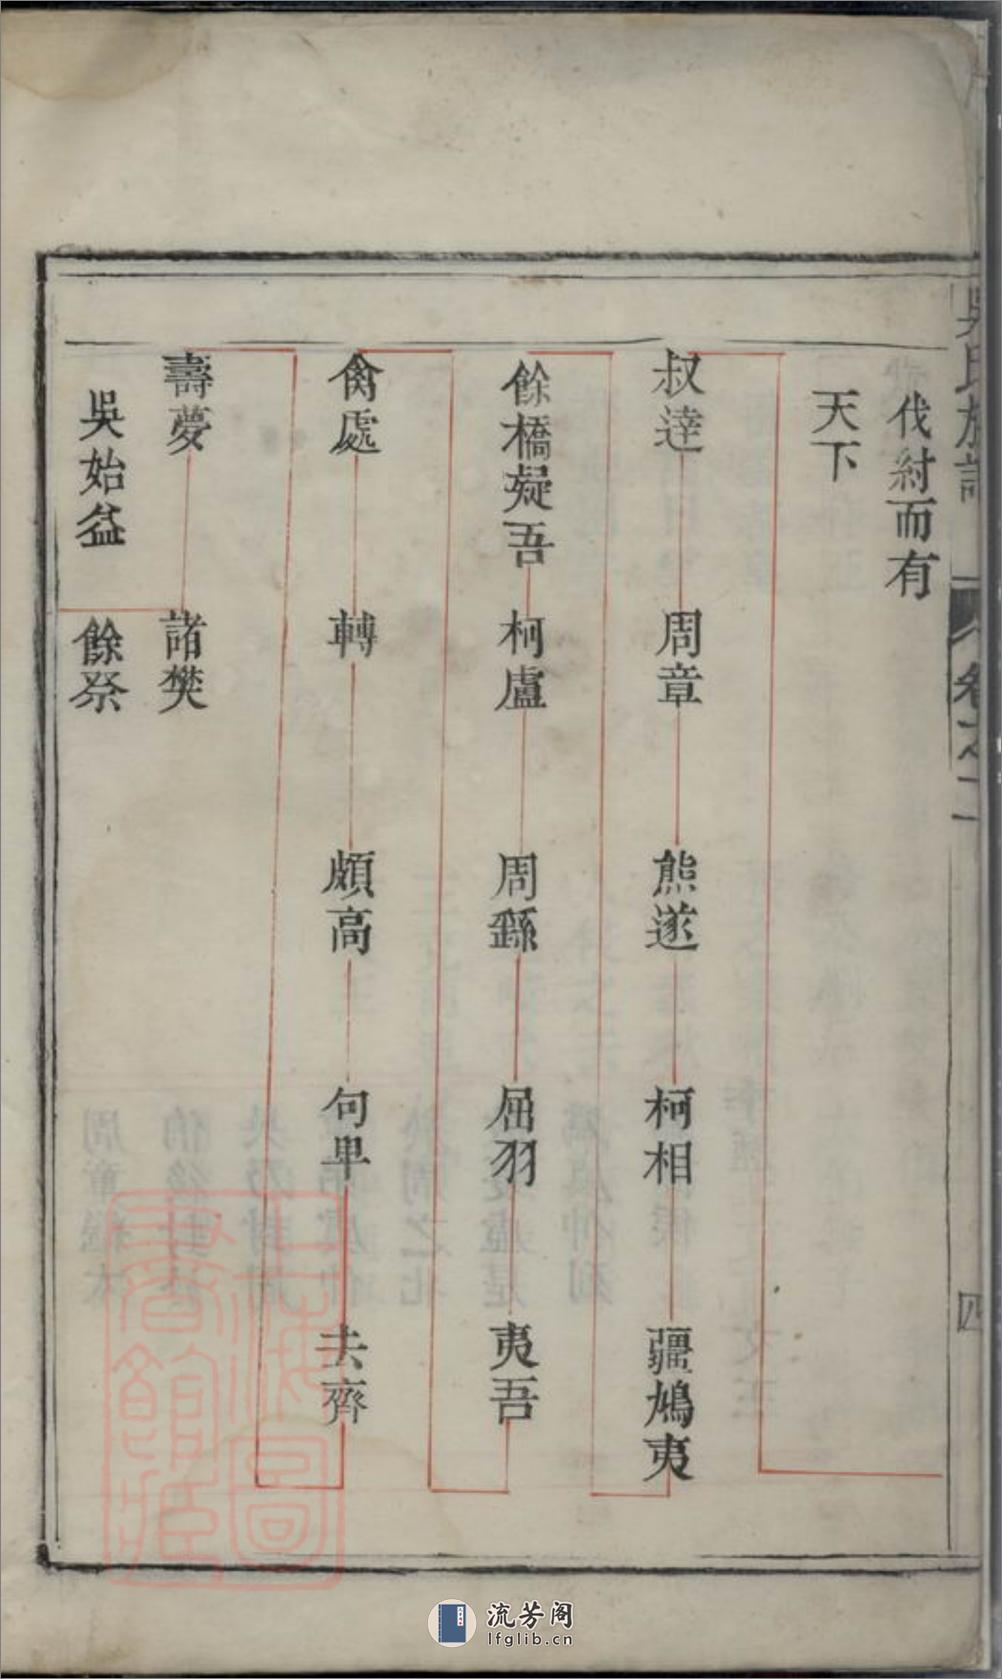 吳氏族譜 卷之二 四
伐紂而有
天下
叔逹 周章 熊遂 柯相 疆鳩夷
餘橋疑吾 柯盧 周繇 屈羽 夷吾
禽處 轉 頗高 句畢 去齊
壽夢 諸樊
吳始益 餘祭
上海圖
書館藏
流芳阁
lfglib.cn